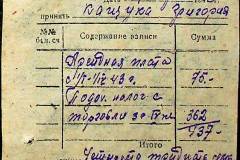 принять Кащука Григория
№№ бал. сч Содержание записи Сумма
Арендная плата
с I/I-1/IV 43 г. 75.-
Подох. налог с
торговли за IV кв 362
Итого 437.-
Четыреста тридцать сем